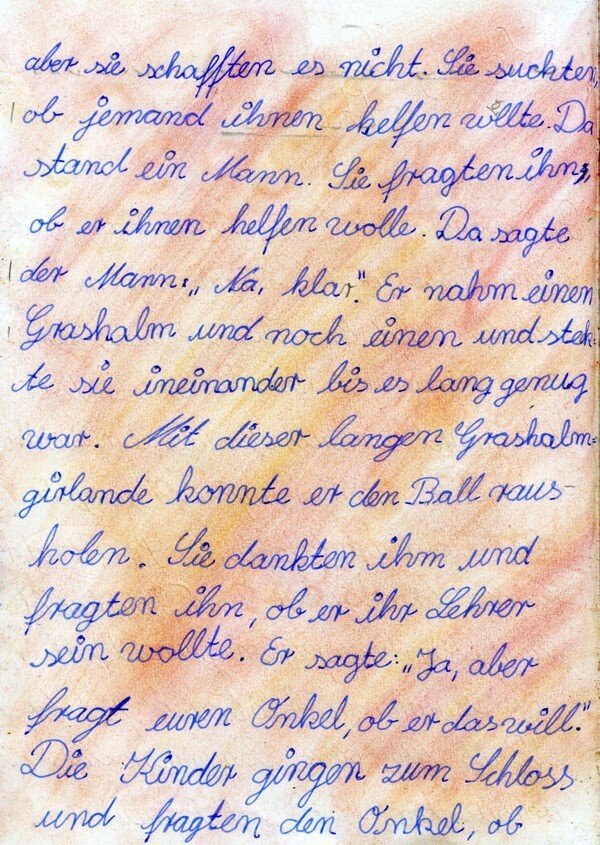 aber sie schafften es nicht. Sie suckten,
ob jemand ihnen helfen wollte. Da
stand ein Mann. Sie fragten ihn,
ob er ihnen helfen wolle. Da sagte
der Mann: „Na, klar." Er nahm einen
Grashalm und noch einen und stek-
te sie ineinander bis es lang genug
war. Mit dieser langen Grashalm=
girlande konnte er den Ball raus-
holen. Sie dankten ihm und
fragten ihn, ob er ihr Lehrer
sein wollte. Er sagte: „Ja, aber
fragt euren Onkel, ob er das will."
Die Kinder gingen zum Schloss
und fragten den Onkel, ob